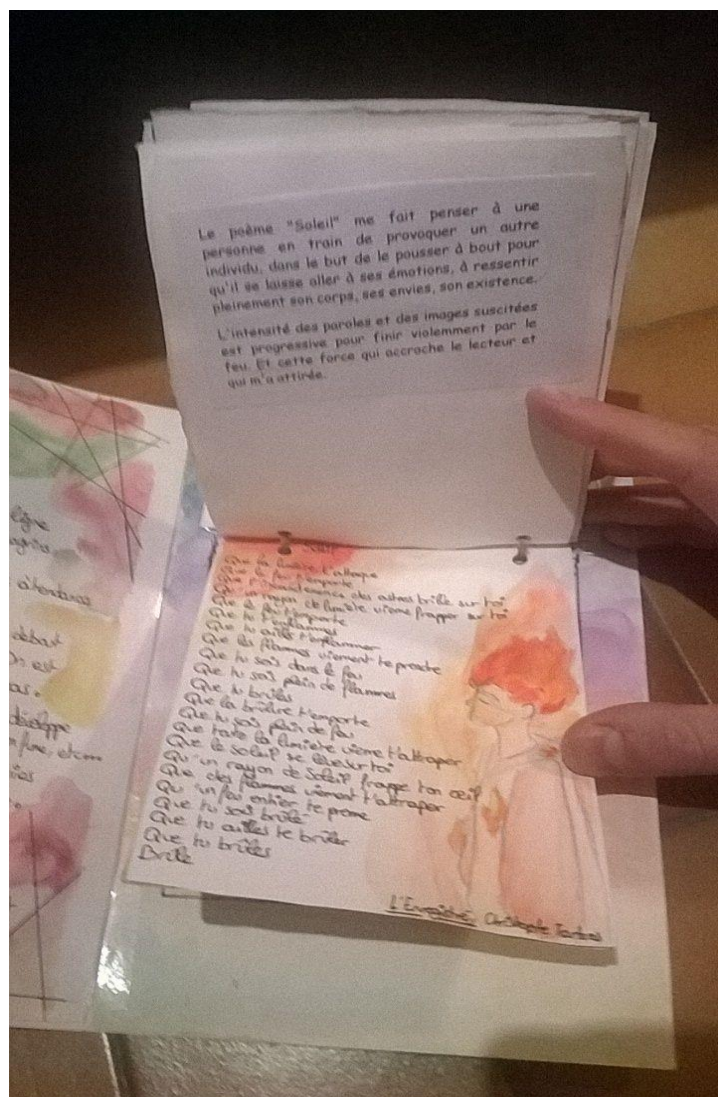 Le poème "Soleil" me fait penser à une
personne en train de provoquer un autre
individu, dans le but de le pousser à bout pour
qu'il se laisse aller à ses émotions, à ressentir
pleinement son corps, ses envies, son existence.
L'intensité des paroles et des images suscitées
est progressive pour finir violemment par le
feu. Et cette force qui accroche le lecteur et
qui m'a attirée.
ligne
debout
est
développe
Que la lumière t'attaque
Que le feu t'emporte
Que l'incandescence des astres brille sur toi
Qu'un rayon de lumière vienne frapper sur toi
Que le feu t'emporte
Que tu t'enflammes
Que tu ailles t'enflammer
Que les flammes viennent te prendre
Que tu sois dans le feu
Que tu sois plein de flammes
Que tu brûles
Que la brûlure t'emporte
Que tu sois plein de feu
Que toute la lumière vienne t'attraper
Que le soleil se lève sur toi
Qu'un rayon de soleil frappe ton œil
Que des flammes viennent t'attraper
Qu'un feu entier te prenne
Que tu sois brûlé
Que tu ailles te brûler
Que tu brûles
Brûle
L'Enregistré, Christophe Tarkos